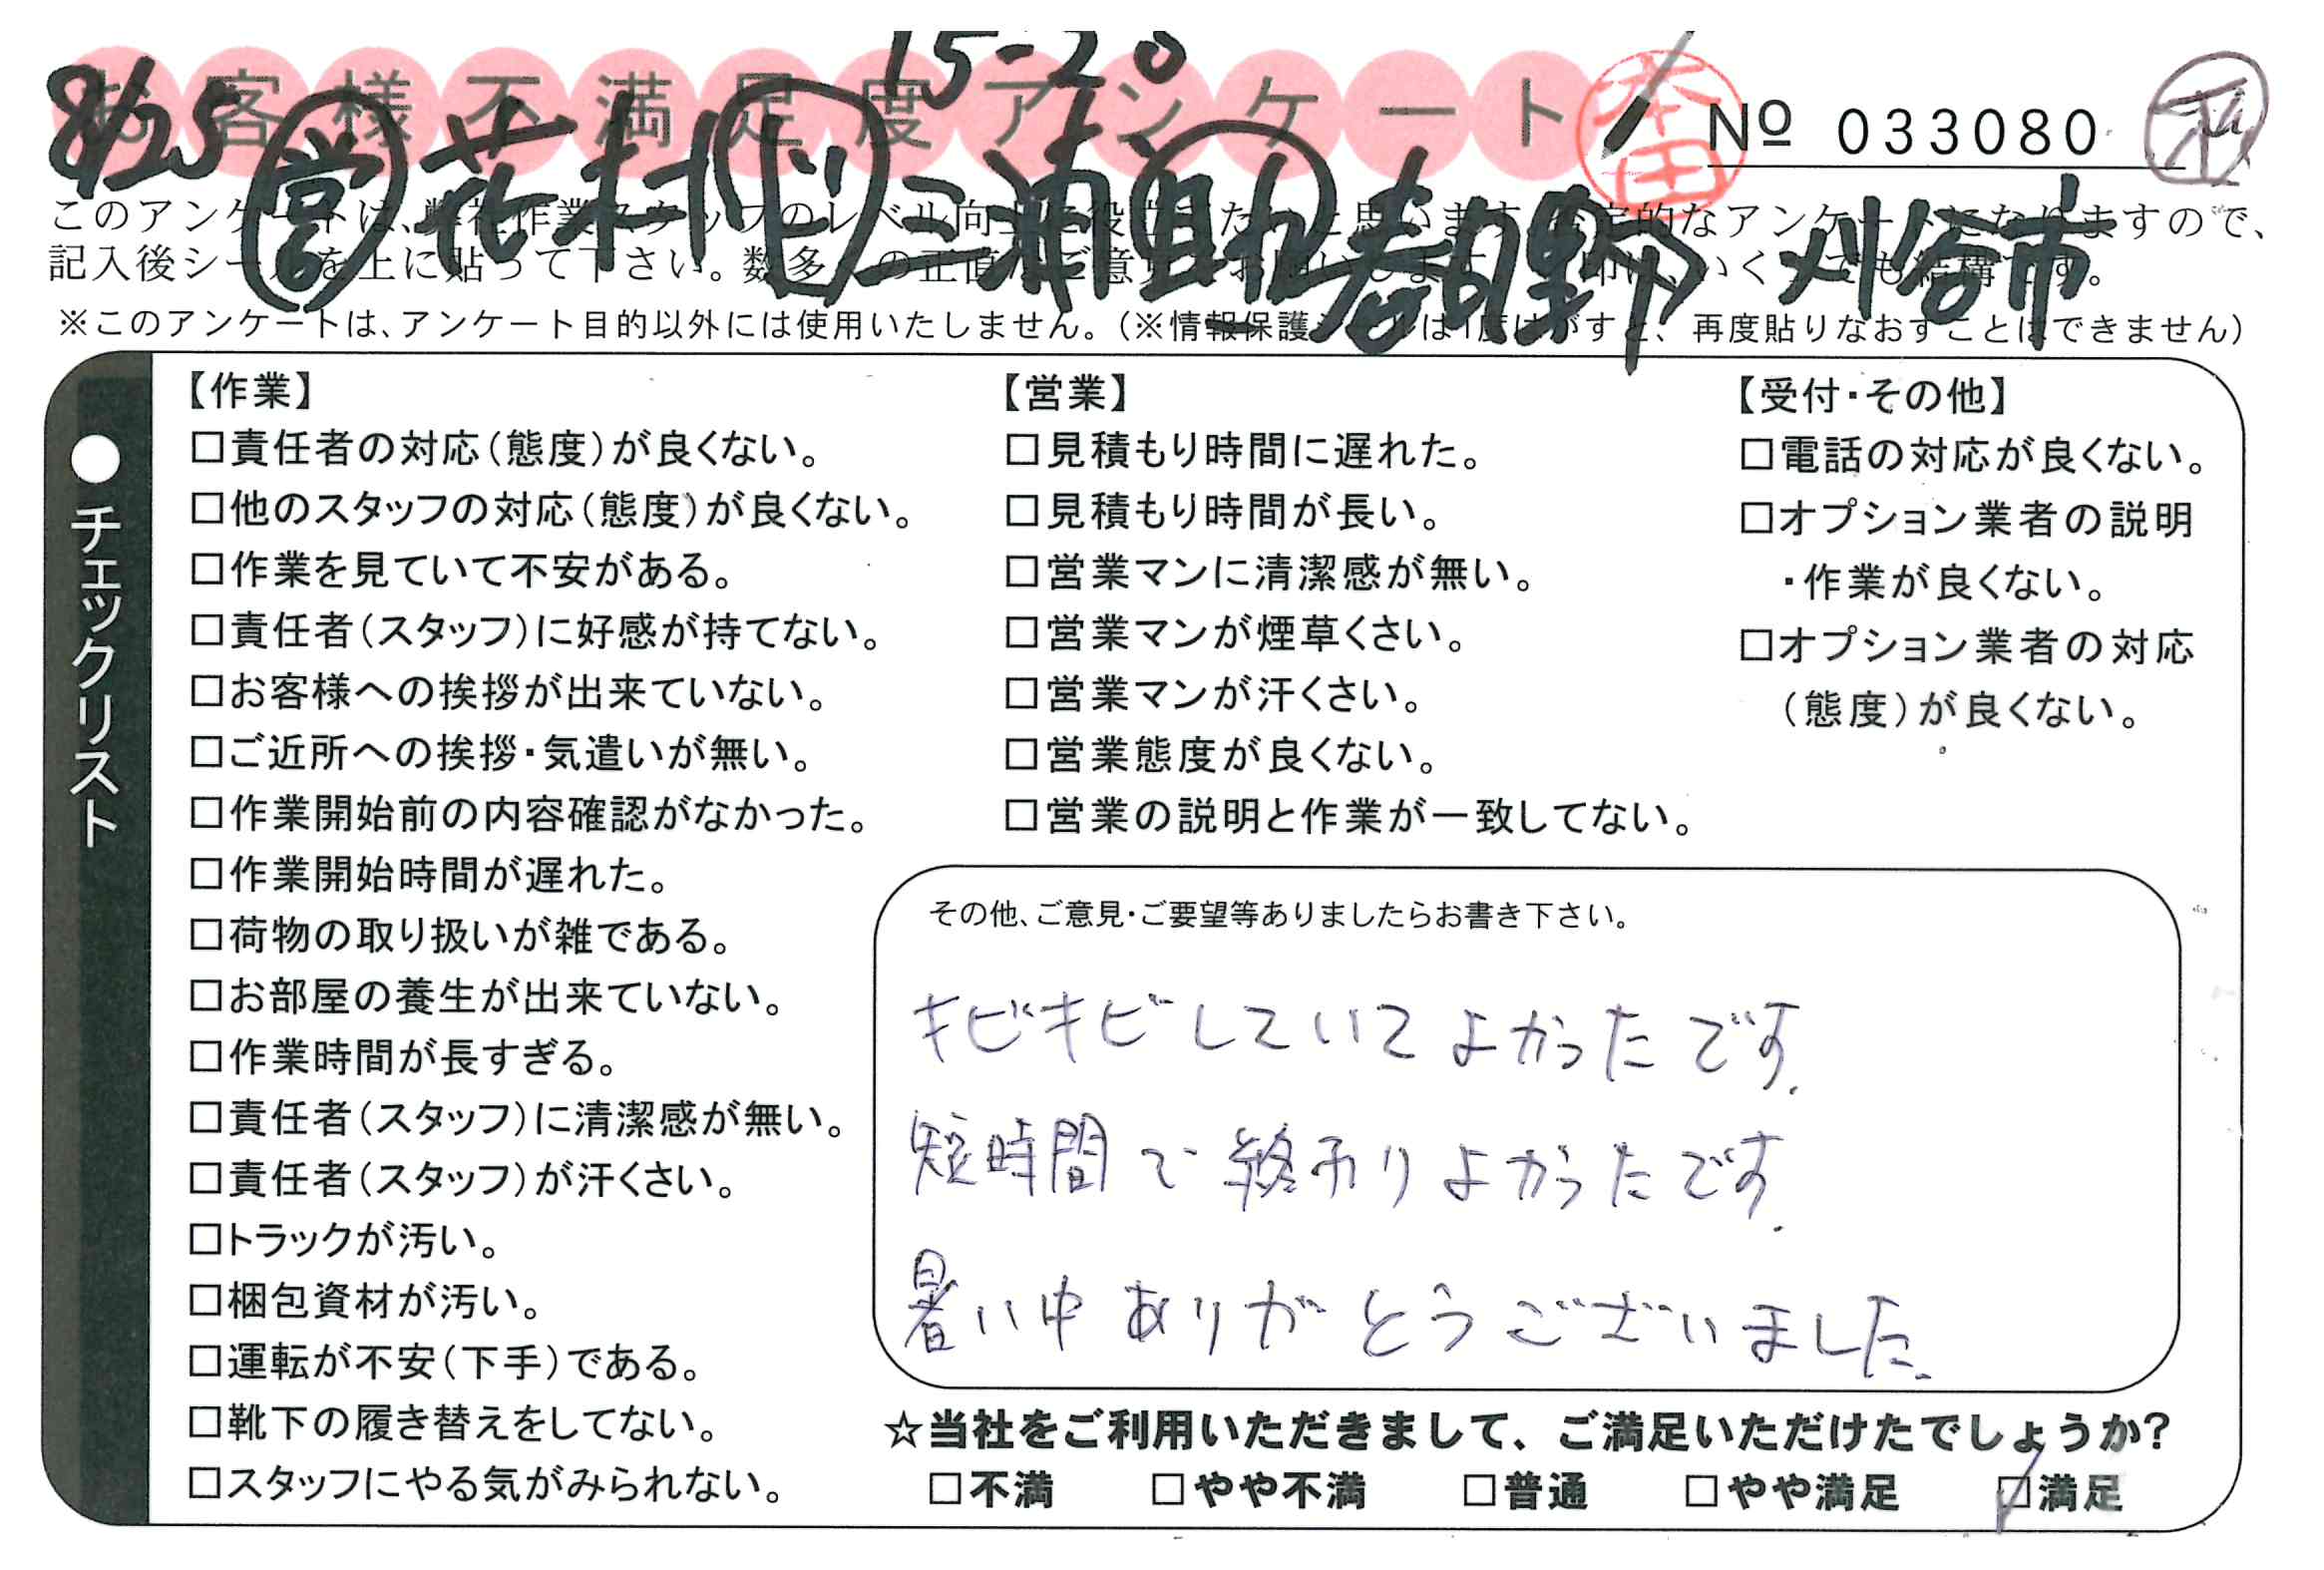 15-28
お客様不満足度アンケート
本田
No 033080
8/25 営 花村 ド 三浦 助 春日野 刈谷市
このアンケートは、弊社作業スタッフのレベル向上に役立てたいと思います。定期的なアンケートになりますので、
記入後シールを上に貼って下さい。数多くの正直なご意見をお願いします。
※このアンケートは、アンケート目的以外には使用いたしません。（※情報保護シールは1度はがすと、再度貼りなおすことはできません）
●チェックリスト
【作業】
□責任者の対応（態度）が良くない。
□他のスタッフの対応（態度）が良くない。
□作業を見ていて不安がある。
□責任者（スタッフ）に好感が持てない。
□お客様への挨拶が出来ていない。
□ご近所への挨拶・気遣いが無い。
□作業開始前の内容確認がなかった。
□作業開始時間が遅れた。
□荷物の取り扱いが雑である。
□お部屋の養生が出来ていない。
□作業時間が長すぎる。
□責任者（スタッフ）に清潔感が無い。
□責任者（スタッフ）が汗くさい。
□トラックが汚い。
□梱包資材が汚い。
□運転が不安（下手）である。
□靴下の履き替えをしてない。
□スタッフにやる気がみられない。
【営業】
□見積もり時間に遅れた。
□見積もり時間が長い。
□営業マンに清潔感が無い。
□営業マンが煙草くさい。
□営業マンが汗くさい。
□営業態度が良くない。
□営業の説明と作業が一致してない。
【受付・その他】
□電話の対応が良くない。
□オプション業者の説明
・作業が良くない。
□オプション業者の対応
（態度）が良くない。
その他、ご意見・ご要望等ありましたらお書き下さい。
キビキビしていてよかったです.
短時間で終わりよかったです.
暑い中ありがとうございました.
☆当社をご利用いただきまして、ご満足いただけたでしょうか？
□不満 □やや不満 □普通 □やや満足 ☑満足